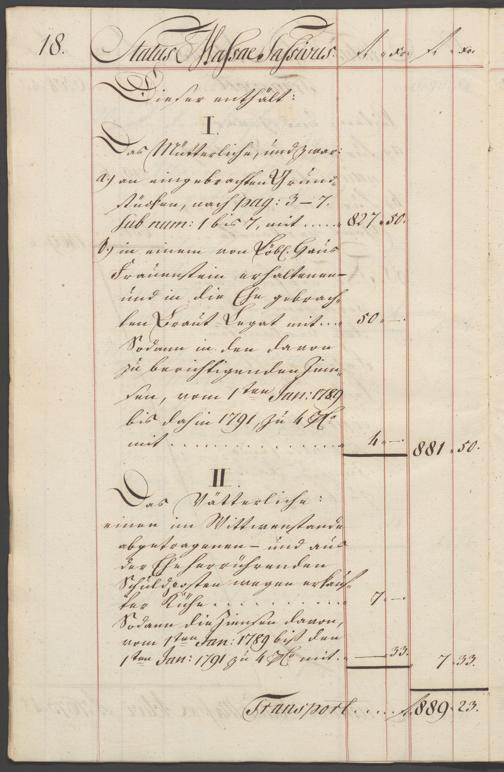 18. Status Massae Passivus: fl. Xr. fl. Xr.
Dieser enthält:
I.
Das Mütterliche, und zwar:
a.) an eingebrachten Grund-
stücken, nach pag: 3–7.
sub num: 1 bis 7, mit .... 827. 50.
b.) in einem von Löbl. Haus
Frauenstein erhaltenen –
und in die Ehe gebrach-
ten Braut Legat mit ... 50. —
Sodann in den davon
zu berichtigenden Zinn-
sen, vom 1ten Jan: 1789
bis dahin 1791, zu 4 P.Co
mit .................. 4. — 881. 50.
II.
Das Vätterliche:
einen im Wittwenstande
abgetragenen – und aus
der Ehe herrührenden
Schuldposten wegen erkauf-
ter Kühe .......... 7. —
Sodann die Zinnsen davon,
vom 1ten Jan: 1789 bis den
1ten Jan: 1791 zu 4 P.Co mit. — 33. 7. 33.
Transport .... f. 889. 23.